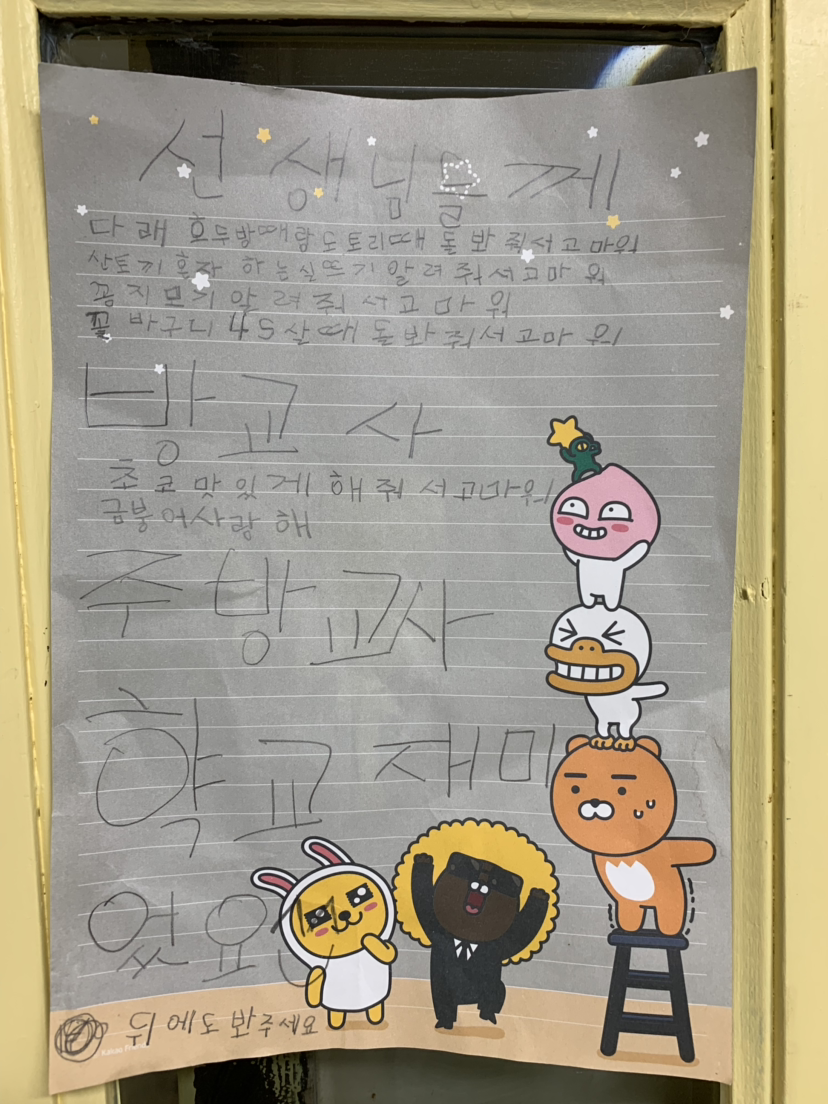 선생님들께
다래 호두방때랑도토리때 돌봐줘서고마워
산토끼혼자 하는실뜨기알려줘서고마워
공지모기알려줘서고마워
꽃바구니 45살때돌봐줘서고마워
방교사
초코맛있게해줘서고마워
금붕어사랑해
주방교사
학교재미
있었요
뒤에도봐주세요